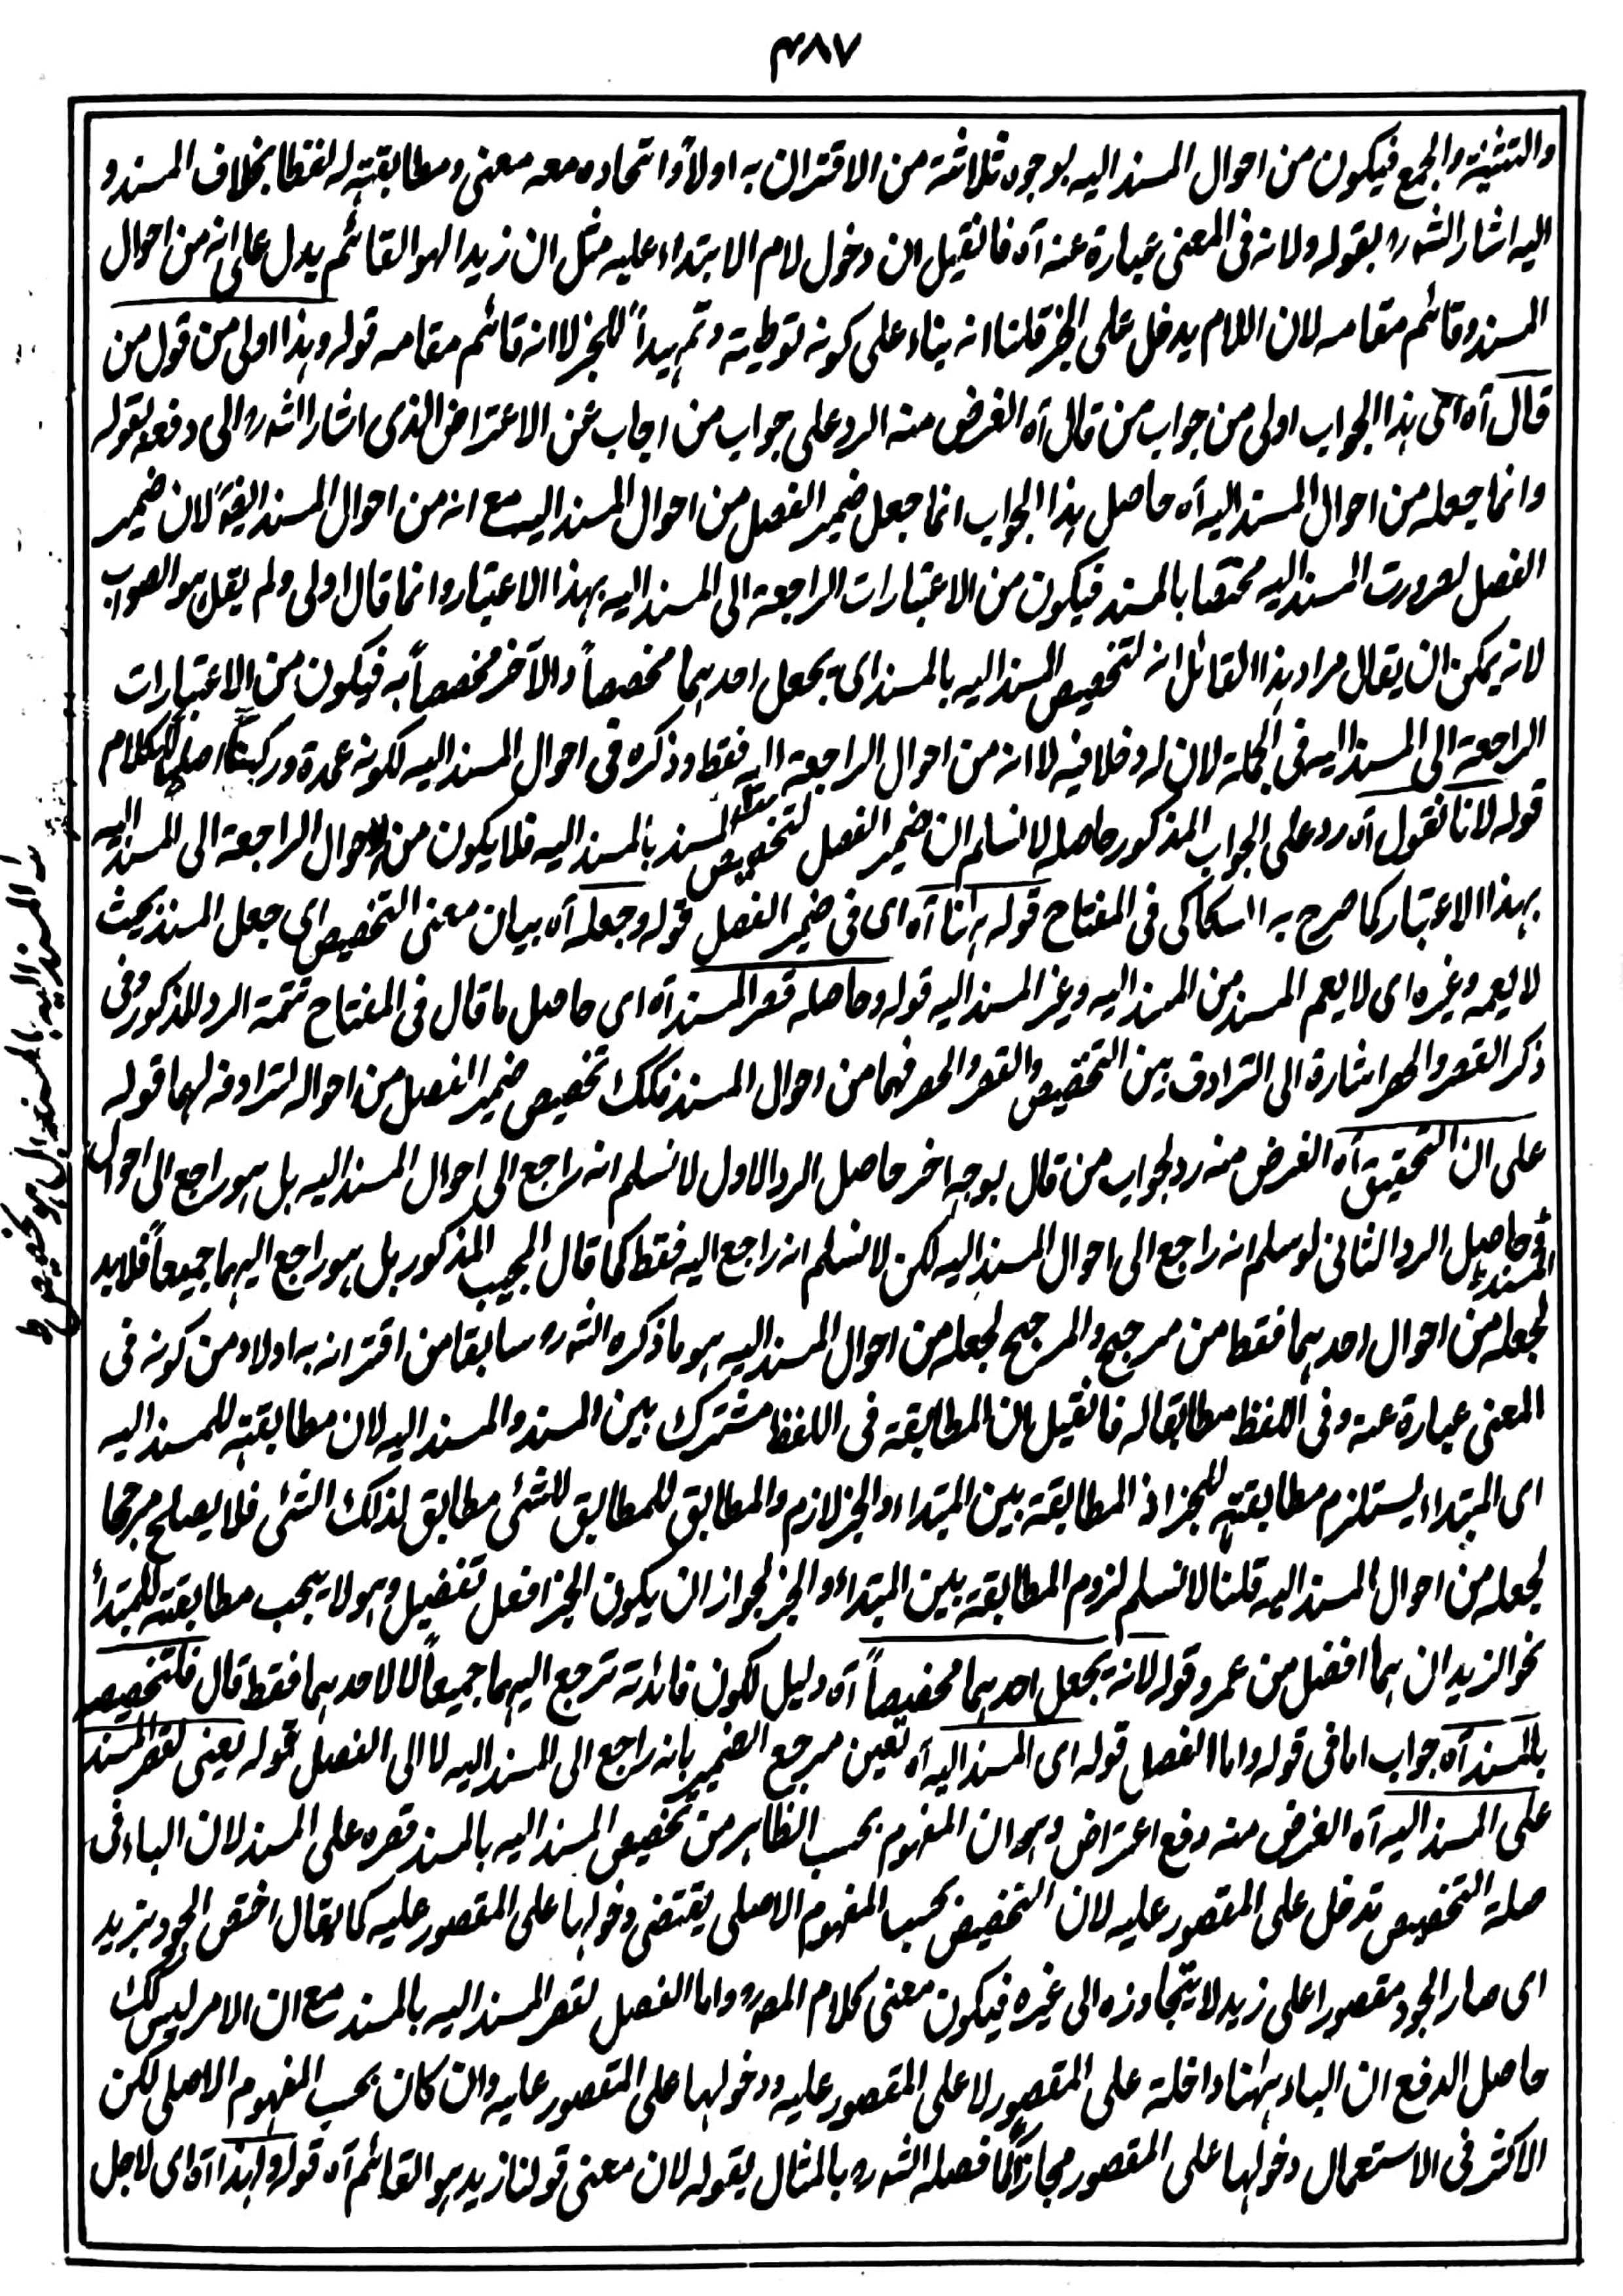 ٣٨٧
والتثنية والجمع فيكون من احوال المسند اليه بوجوه ثلاثة من الاقتران به اولاً واتحاده معه معنى ومطابقته له لفظا بخلاف المسند و
اليه اشار الشه ره بقوله ولانه فى المعنى عبارة عنه آه فانقيل ان دخول لام الابتداء عليه مثل ان زيدا لهو القائم يدل على انه من احوال
المسند وقائم مقامه لان اللام يدخل على الخبر قلنا انه بناء على كونه توطية وتمهيداً للخبر لا انه قائم مقامه قوله وهذا اولى من قول من
قال آه اى هذا الجواب اولى من جواب من قال آه الغرض منه الرد على جواب من اجاب عن الاعتراض الذى اشار الشه ره الى دفعه بقوله
وانما جعله من احوال المسند اليه آه حاصل هذا الجواب انما جعل ضمير الفصل من احوال المسند اليه مع انه من احوال المسند ايضًا لان ضمير
الفصل لصرورت المسند اليه مختصا بالمسند فيكون من الاعتبارات الراجعة الى المسند اليه بهذا الاعتبار وانما قال اولى ولم يقل هو الصواب
لانه يمكن ان يقال مراد هذا القائل انه لتخصيص المسند اليه بالمسند اى بجعل احدهما مخصصاً والآخر مخصصاً به فيكون من الاعتبارات
الراجعة الى المسند اليه فى الجملة لان له دخلا فيه لا انه من احوال الراجعة اليه فقط وذكره فى احوال المسند اليه لكونه عمدة وركناً اصلياً للكلام
قوله لانا نقول آه رد على الجواب المذكور حاصله لا نسلم ان ضمير الفصل لتخصيص المسند بالمسند اليه فلا يكون من الاحوال الراجعة الى المسند اليه
بهذا الاعتبار كما صرح به السكاكى فى المفتاح قوله ههنا آه اى فى ضمير الفصل قوله وجعله آه بيان معنى التخصيص اى جعل المسند بحيث
لا يعمه وغيره اى لا يعم المسند من المسند اليه وغير المسند اليه قوله وحاصله قصر المسند آه اى حاصل ما قال فى المفتاح تتمة الرد المذكور وفى
ذكر القصر والحصر اشارة الى الترادف بين التخصيص والقصر والحصر فهما من احوال المسند فكك تخصيص ضمير الفصل من احواله لترادفه لهما قوله
على ان التحقيق آه الغرض منه رد لجواب من قال بوجه اخر حاصل الرد الاول لا نسلم انه راجع الى احوال المسند اليه بل هو راجع الى احوال
المسند حاصل الرد الثانى لو سلم انه راجع الى احوال المسند اليه لكن لا نسلم انه راجع اليه فقط كما قال المجيب المذكور بل هو راجع اليهما جميعاً فلا بد
لجعله من احوال احدهما فقط من مرجح والمرجح لجعله من احوال المسند اليه هو ما ذكره الشه ره سابقا من اقترانه به اولا ومن كونه فى
المعنى عبارة عنه وفى اللفظ مطابقا له فانقيل ان المطابقة فى اللفظ مشترك بين المسند والمسند اليه لان مطابقته للمسند اليه
اى المبتداء يستلزم مطابقته للخبر اذ المطابقة بين المبتداء والخبر لازم والمطابق للمطابق للشئ مطابق لذلك الشئ فلا يصلح مرجحا
لجعله من احوال المسند اليه قلنا لا نسلم لزوم المطابقة بين المبتداء والخبر لجواز ان يكون الخبر افعل تفضيل وهو لا يجب مطابقته للمبتدأ
نحو الزيدان هما افضل من عمرو قوله لانه يجعل احدهما مخصصاً آه دليل لكون فائدته ترجع اليهما جميعاً لا لاحدهما فقط قال فلتخصيصه
بالمسند آه جواب اما فى قوله واما الفصل قوله اى المسند اليه آه تعين مرجع الضمير بانه راجع الى المسند اليه لا الى الفصل قوله يعنى لقصر المسند
على المسند اليه آه الغرض منه دفع اعتراض وهو ان المفهوم بحسب الظاهر من تخصيص المسند اليه بالمسند قصره على المسند لان الباء فى
صلة التخصيص تدخل على المقصور عليه لان التخصيص بحسب المفهوم الاصلى يقتضى دخولها على المقصور عليه كما يقال اختص الجود بزيد
اى صار الجود مقصورا على زيد لا يتجاوزه الى غيره فيكون معنى كلام المصه ره واما الفصل لقصر المسند اليه بالمسند مع ان الامر ليس كك
حاصل الدفع ان الباء ههنا داخلة على المقصور لا على المقصور عليه ودخولها على المقصور عليه وان كان بحسب المفهوم الاصلى لكن
الاكثر فى الاستعمال دخولها على المقصور مجازاً كما فصله الشه ره بالمثال بقوله لان معنى قولنا زيد هو القائم آه قوله ولهذا آه اى لاجل
المسند اليه بالمسند بل هو لتخصيص